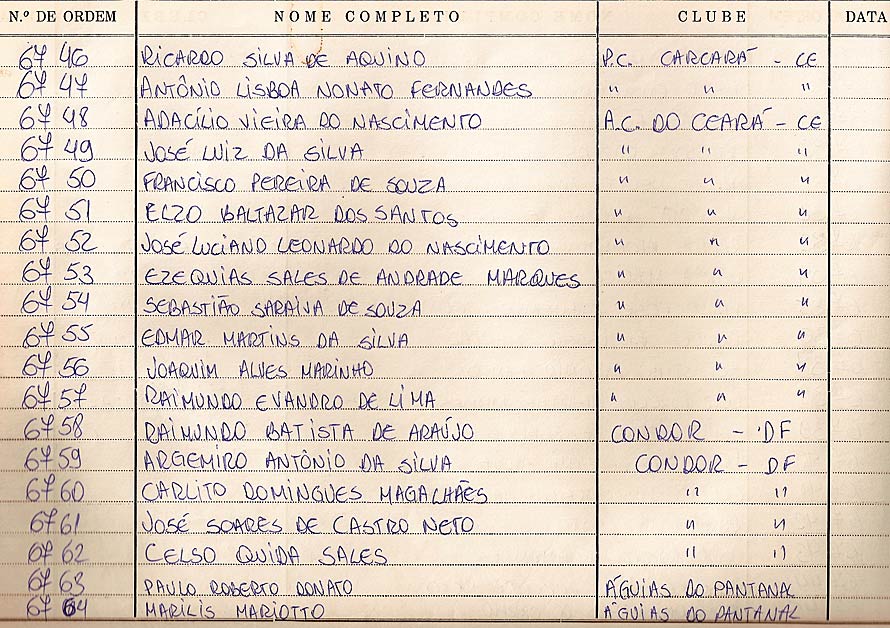 N.º DE ORDEM NOME COMPLETO CLUBE DATA
67 46 RICARDO SILVA DE AQUINO P.C. CARCARÁ - CE
67 47 ANTÔNIO LISBOA NONATO FERNANDES " " "
67 48 ADACÍLIO VIEIRA DO NASCIMENTO A.C. DO CEARÁ - CE
67 49 JOSÉ LUIZ DA SILVA " " "
67 50 FRANCISCO PEREIRA DE SOUZA " " "
67 51 ELZO BALTAZAR DOS SANTOS " " "
67 52 JOSÉ LUCIANO LEONARDO DO NASCIMENTO " " "
67 53 EZEQUIAS SALES DE ANDRADE MARQUES " " "
67 54 SEBASTIÃO SARAIVA DE SOUZA " " "
67 55 EDMAR MARTINS DA SILVA " " "
67 56 JOAQUIM ALVES MARINHO " " "
67 57 RAIMUNDO EVANDRO DE LIMA " " "
67 58 RAIMUNDO BATISTA DE ARAÚJO CONDOR - DF
67 59 ARGEMIRO ANTÔNIO DA SILVA CONDOR - DF
67 60 CARLITO DOMINGUES MAGALHÃES " "
67 61 JOSÉ SOARES DE CASTRO NETO " "
67 62 CELSO QUIDA SALES " "
67 63 PAULO ROBERTO DONATO ÁGUIAS DO PANTANAL
67 64 MARILIS MARIOTTO ÁGUIAS DO PANTANAL